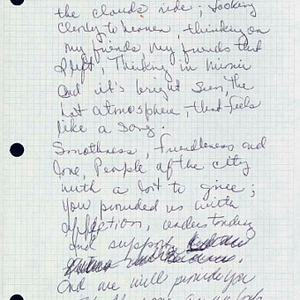 the clouds ride; looking
closely to heaven, thinking on
my friends, my friends that
I left, Thinking in Miami
and it's bright sun, the
hot atmosphere, that feels
like a song.
Smoothness, friendliness and
love, People of the city
with a lot to give;
you provided us with
affection, understanding
and support
And we will provide you